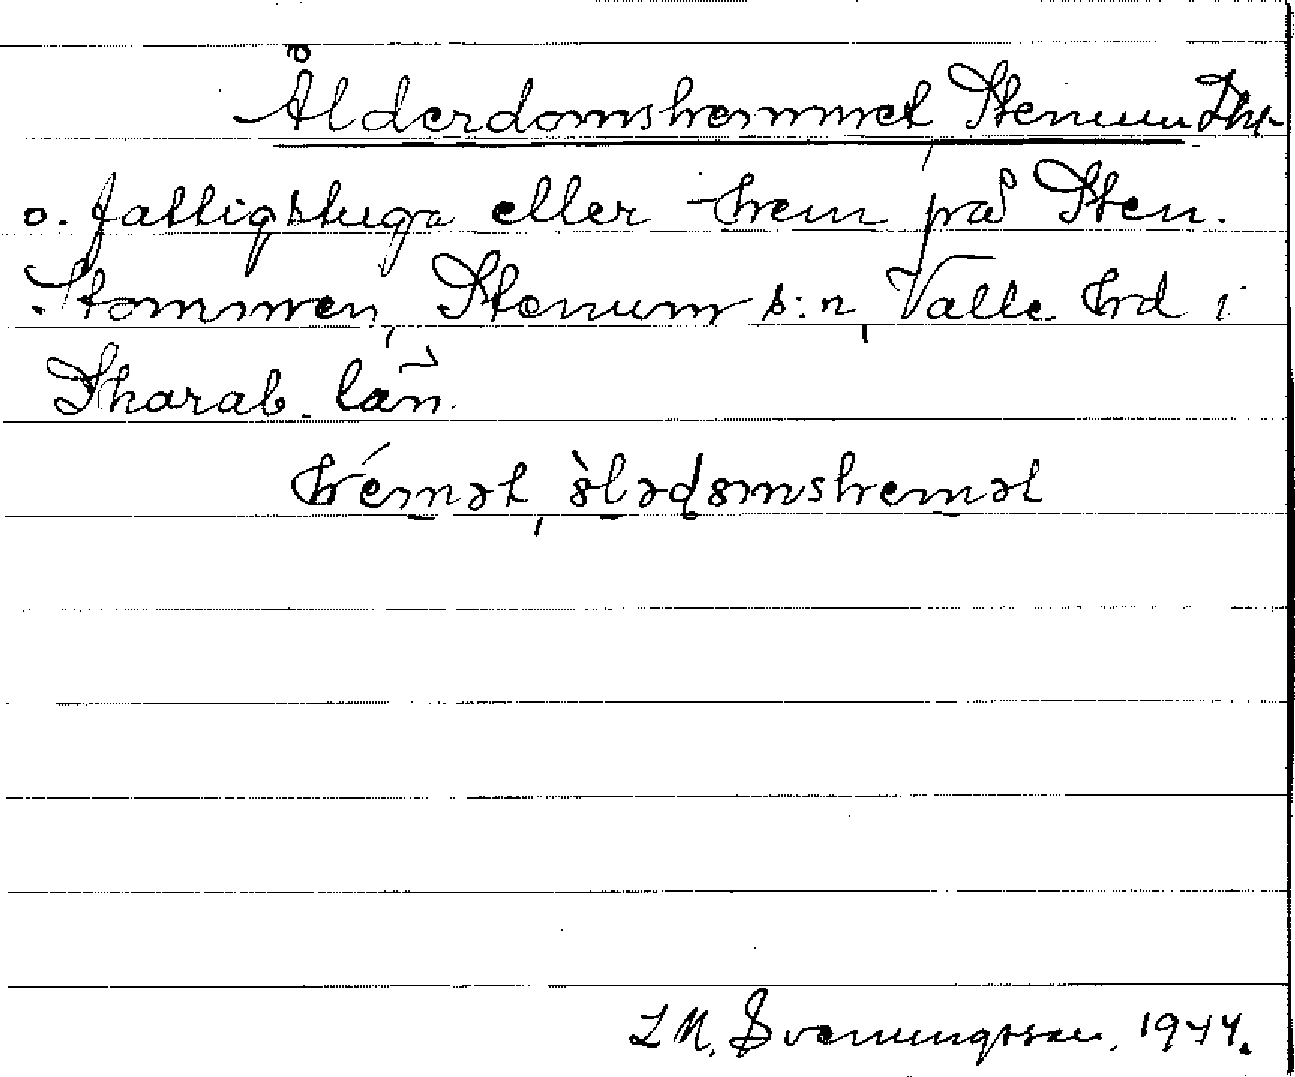 Ålderdomshemmet Stenum Lht
o. fattigstuga eller -hem på Sten.
Stommen, Stenum s:n, Valle hd i
Skarab. län.
hémət, òlədomshemət
L M. Svenungsson. 1944.